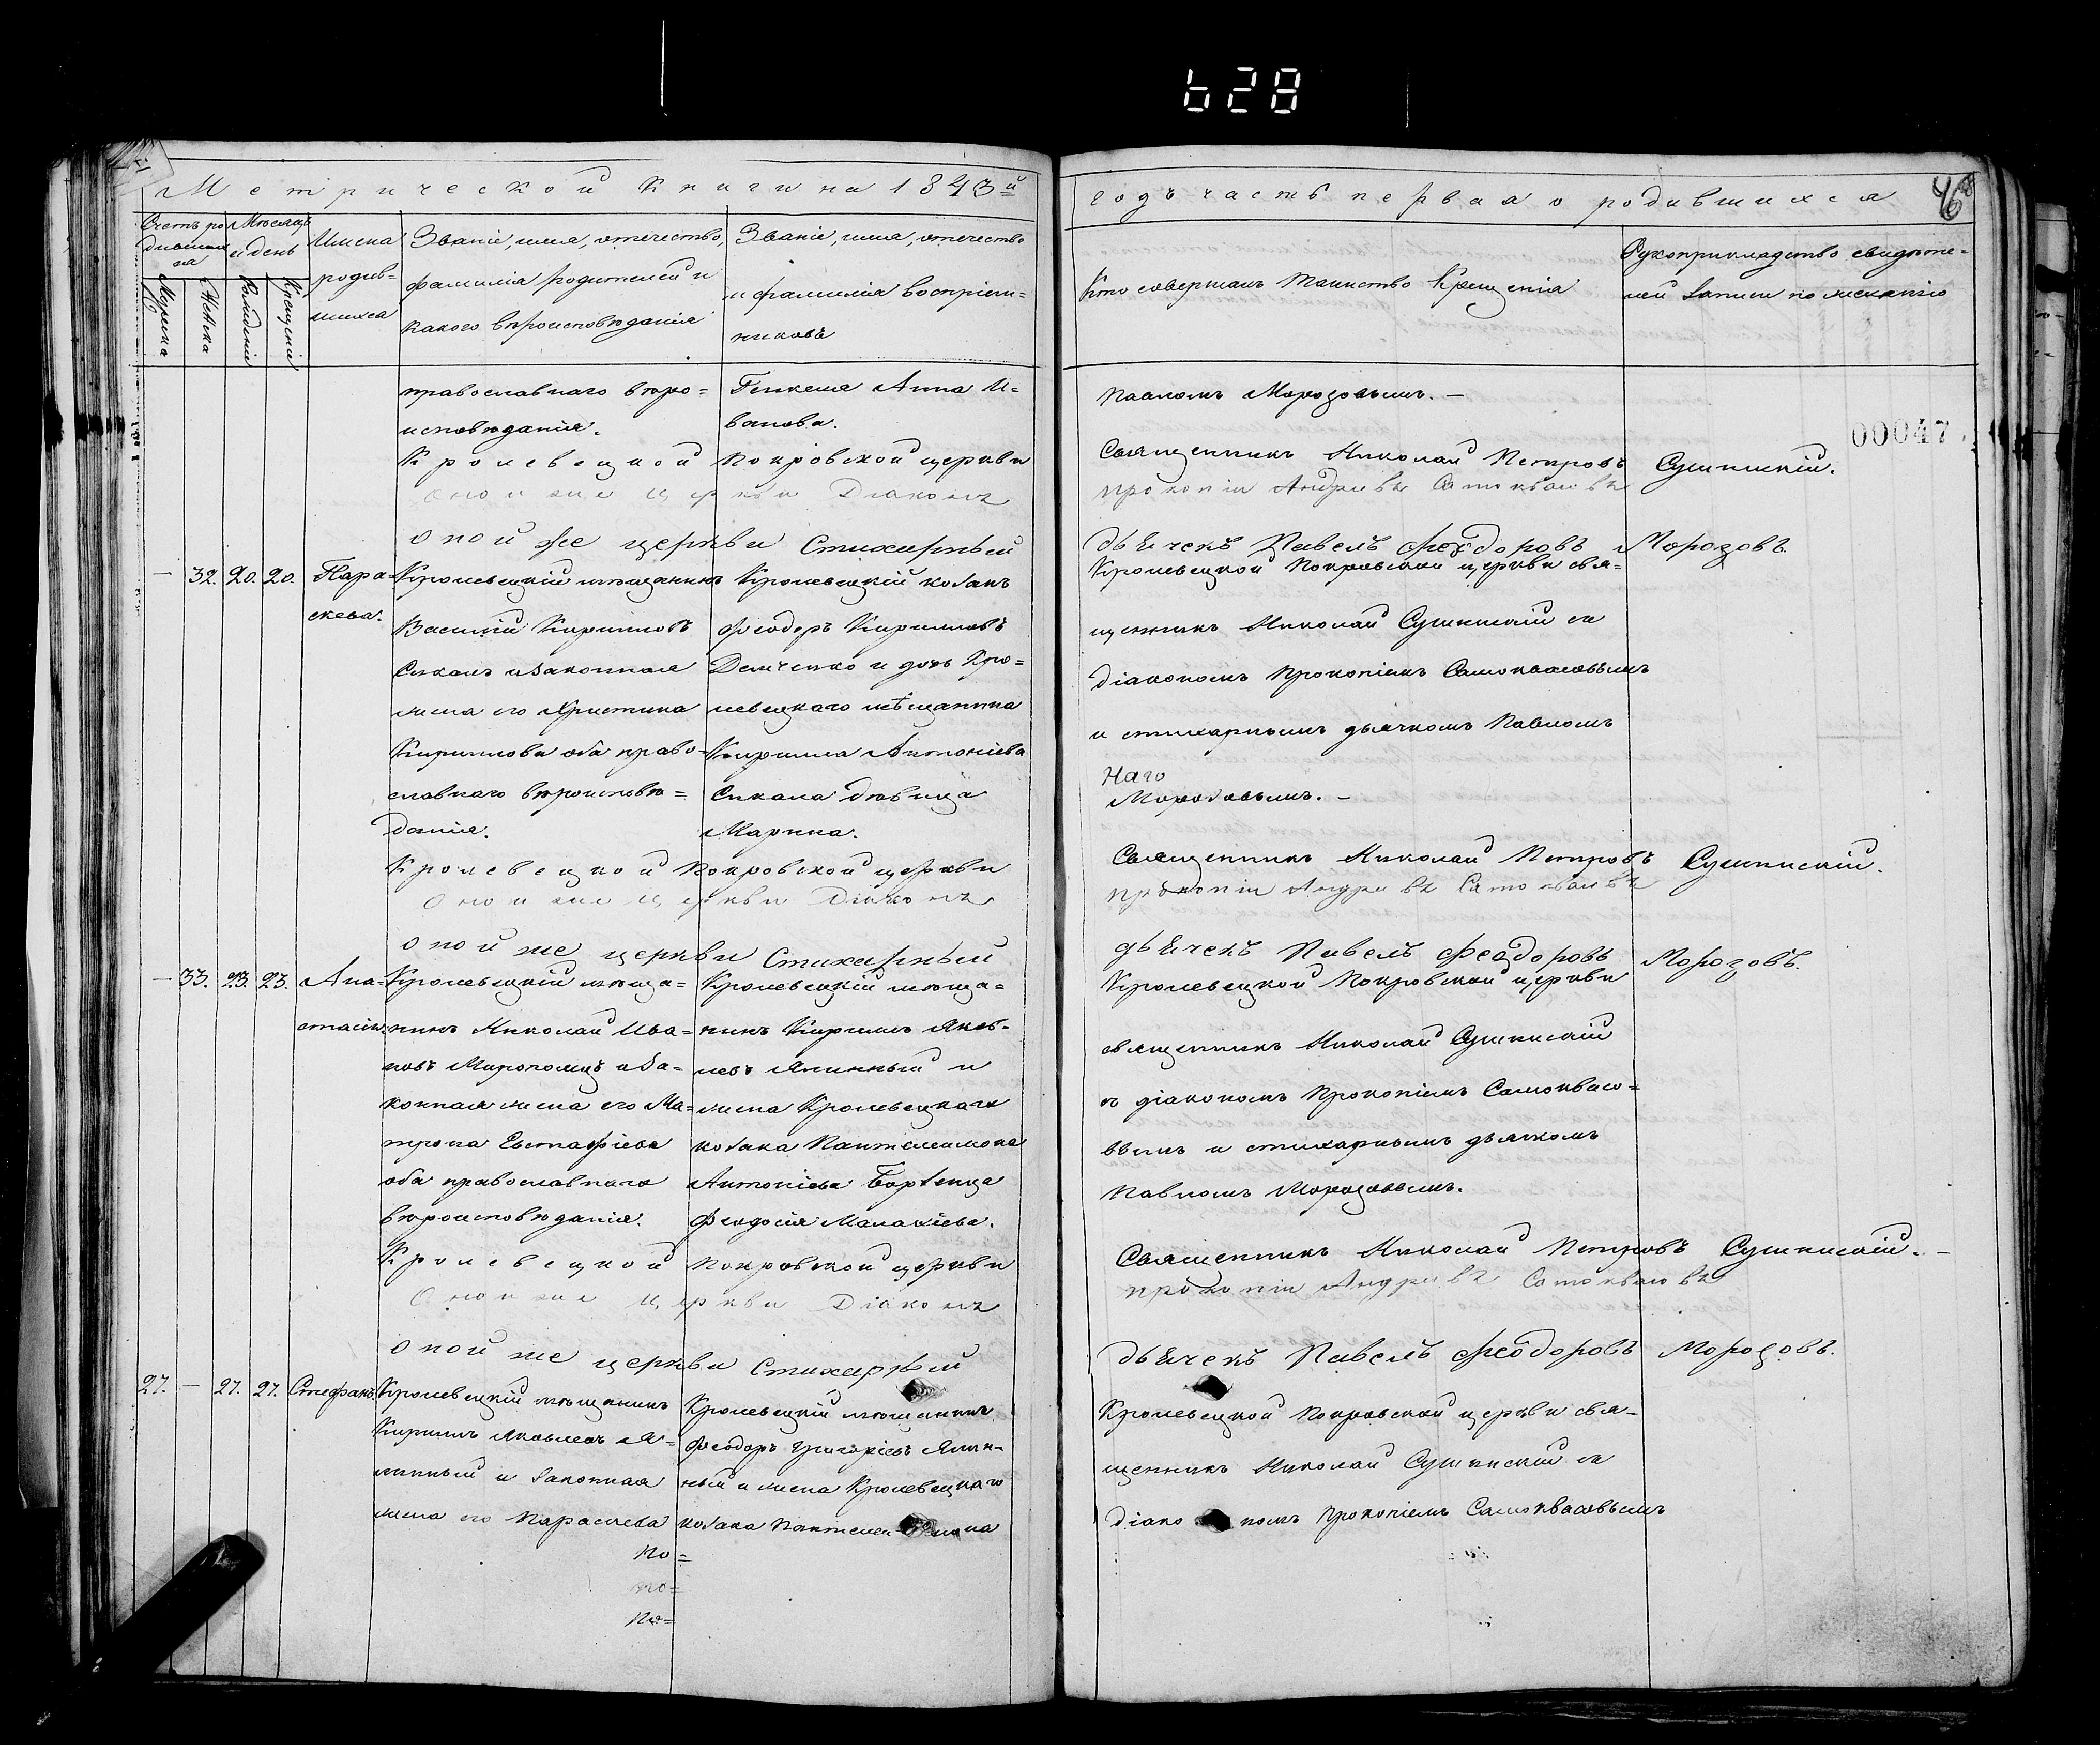 628
Метрической книги на 1843й
годъ часть первая о родившихся
46
Счетъ ро
дившихся
Мѣсяцъ
и день
Имена
родив=
шихся
Званіе, имя, отечество,
фамилія родителей и
какого вѣроисповѣданія
Званіе, имя, отечество
и фамилія воспріем=
никовъ
Кто совершалъ Таинство Крещенія
Рукоприкладство свидѣте=
лей записи по желанію
Мужеска
Женска
Рожденіе
Крещеніе
православнаго вѣро=
исповѣданія.
Анна И=
ванова.
Павломъ Морозовымъ. —
00047
Кролевецкой Покровской церкви
Священникъ Николай Петровъ Сушинскій.
Оной же церкви Діаконъ
Прокопій Андреевъ Самоквасовъ
Оной же церкви Стихарный
дьячекъ Павелъ Феодоровъ Морозовъ.
— 32. 20. 20.
Пара=
скева.
Кролевецкій мѣщанинъ
Василій Кирилловъ
Сикалъ и законная
жена его Христина
Кириллова оба право=
славнаго вѣроисповѣ=
данія.
Кролевецкій козакъ
Феодоръ Кирилловъ
Демченко и дочь Кро=
левецкаго мѣщанина
Кирилла Антоніева
Сикала дѣвица
Марина.
Кролевецкой Покровской церкви свя=
щенникъ Николай Сушинскій съ
діакономъ Прокопіемъ Самоквасовымъ
и стихарнымъ дьячкомъ Павломъ
Наго
Морозовымъ. —
Кролевецкой Покровской церкви
Священникъ Николай Петровъ Сушинскій.
Оной же церкви Діаконъ
Прокопій Андреевъ Самоквасовъ
Оной же церкви Стихарный
дьячекъ Павелъ Феодоровъ Морозовъ.
— 33. 23. 23.
Ана=
стасія.
Кролевецкій мѣща=
нинъ Николай Ива=
новъ Мирополецъ и за=
конная жена его Ма=
трона Евстафіева
оба православнаго
вѣроисповѣданія.
Кролевецкій мѣща=
нинъ Кириллъ Яков=
левъ Ялинный и
жена Кролевецкаго
козака Пантелеимона
Антоніева
Феодосія Малахіева.
Кролевецкой Покровской церкви
священникъ Николай Сушинскій
съ діакономъ Прокопіемъ Самоквасо=
вымъ и стихарнымъ дьячкомъ
Павломъ Морозовымъ.
Кролевецкой Покровской церкви
Священникъ Николай Петровъ Сушинскій. —
Оной же церкви Діаконъ
Прокопій Андреевъ Самоквасовъ
Оной же церкви Стихарный
дьячекъ Павелъ Феодоровъ Морозовъ.
27. — 27. 27.
Стефанъ.
Кролевецкій мѣщанинъ
Кириллъ Яковлевъ Я=
линный и законная
жена его Параскева
По=
по=
по=
Кролевецкій мѣщанинъ
Феодоръ Григоріевъ Ялин=
ный и жена Кролевецкаго
козака Пантелеимона
Кролевецкой Покровской церкви свя=
щенникъ Николай Сушинскій съ
діакономъ Прокопіемъ Самоквасовымъ